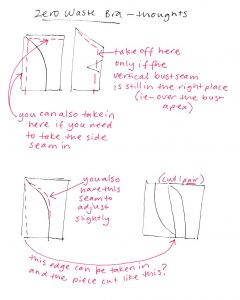 Zero Waste Bra - thoughts
take off here
only if the
vertical bust seam
is still in the right place
(ie- over the bust
apex)
you can also take in
here if you need
to take the side
seam in
you also
have this
seam to
adjust
slightly
(cut 1 pair)
this edge can be taken in
and the piece cut like this?